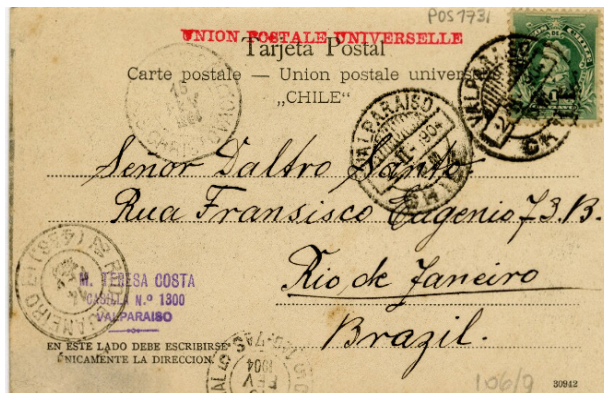 POS1731
UNION POSTALE UNIVERSELLE
Tarjeta Postal
Carte postale — Union postale universelle
„CHILE"
VALPARAISO
CHILE
VALPARAISO
1904
CHILE
15
FEV
Señor Daltro Santos
Rua Fransisco Eugenio 73.B.
Rio de Janeiro
Brazil.
JANEIRO
M. TERESA COSTA
CASILLA N.º 1300
VALPARAISO
EN ESTE LADO DEBE ESCRIBIRSE
ÚNICAMENTE LA DIRECCION.
1904
FEV
106/9
30942